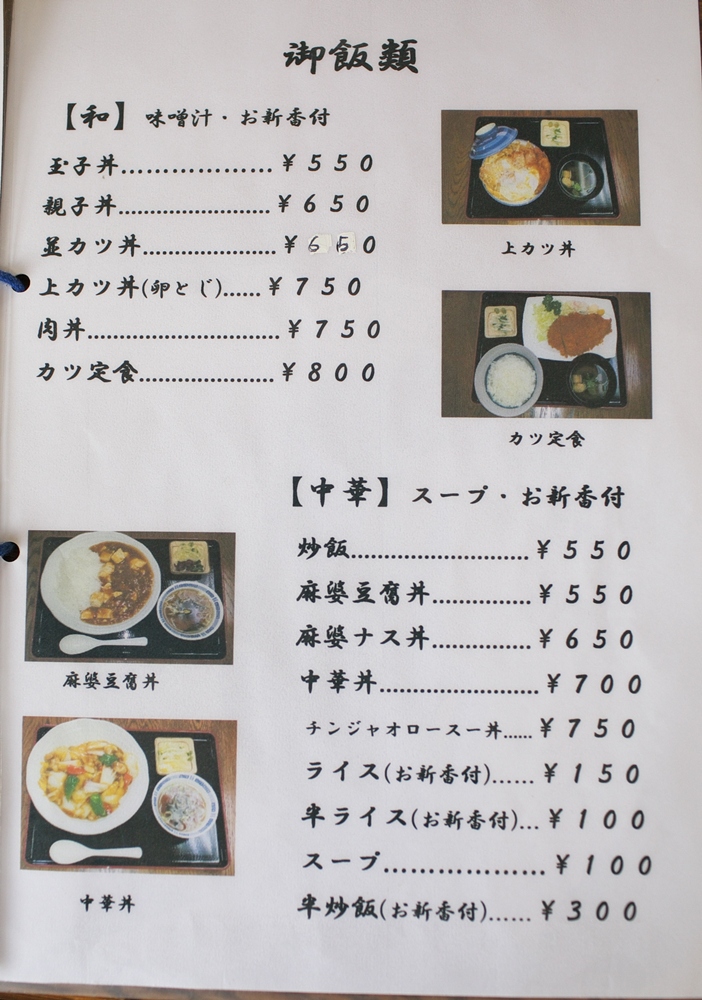 御飯類
【和】 味噌汁・お新香付
玉子丼..................￥550
親子丼..................￥650
並カツ丼................￥650
上カツ丼(卵とじ)......￥750
肉丼.......................￥750
カツ定食................￥800
上カツ丼
カツ定食
【中華】 スープ・お新香付
炒飯.....................￥550
麻婆豆腐丼............￥550
麻婆ナス丼............￥650
中華丼...................￥700
チンジャオロースー丼......￥750
ライス(お新香付)......￥150
半ライス(お新香付)...￥100
スープ...................￥100
半炒飯(お新香付)......￥300
麻婆豆腐丼
中華丼